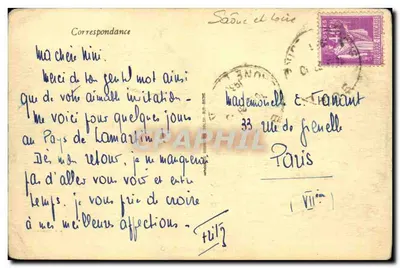 Correspondance
Saône et Loire
Ma chère Mini.
Merci de ton gentil mot ainsi
que de votre aimable invitation.
Me voici pour quelques jours
au Pays de Lamartine.
Dès mon retour, je ne manquerai
pas d'aller vous voir et entre
temps, je vous prie de croire
à mes meilleures affections.
Mademoiselle E.
33 rue de Grenelle
Paris
(VIIème)